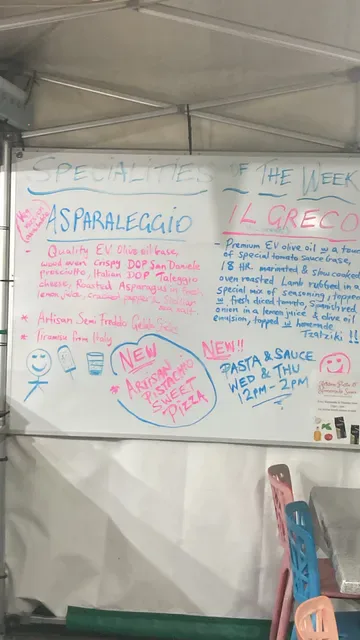 SPECIALITIES OF THE WEEK
ASPARALEGGIO
- Quality EV Olive oil base,
wood oven crispy DOP San Daniele
prosciutto, Italian DOP Taleggio
cheese, Roasted Asparagus in
lemon juice, cracked pepper &
* Artisan Semi Freddo
* Tiramisu from Italy
NEW
* ARTISAN
PISTACHIO
SWEET
PIZZA
IL GRECO
- Premium EV olive oil
of special tomato sauce base,
18 HR. marinated & slow cooked
oven roasted Lamb rubbed in a
special mix of seasoning, topped
w fresh diced tomato,
onion in a lemon juice & olive oil
emulsion, topped w homemade
Tzatziki !!
NEW!!
PASTA & SAUCE
WED & THU
12PM - 2PM